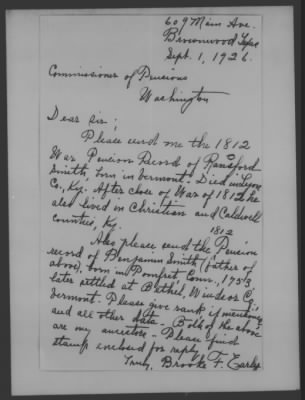 609 Main Ave.
Brownwood Texas
Sept. 1, 1926.
Commissioner of Pensions
Washington
Dear Sir;
Please send me the 1812
War, Pension Record of Ransford
Smith, born in Vermont - Died in
Co., Ky. After close of War of 1812 he
also lived in Christian and Caldwell
counties, Ky.
1812
Also please send the Pension
record of Benjamin Smith (father of
above), born in Pomfret, Conn., 1753
later settled at Bethel, Windsor Co.,
Vermont. Please give rank if mentioned
and all other data. Both of the above
are my ancestors. Please find
stamp enclosed for reply.
Truly, Brooke F. Earle